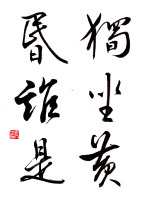 獨坐黃
昏誰是